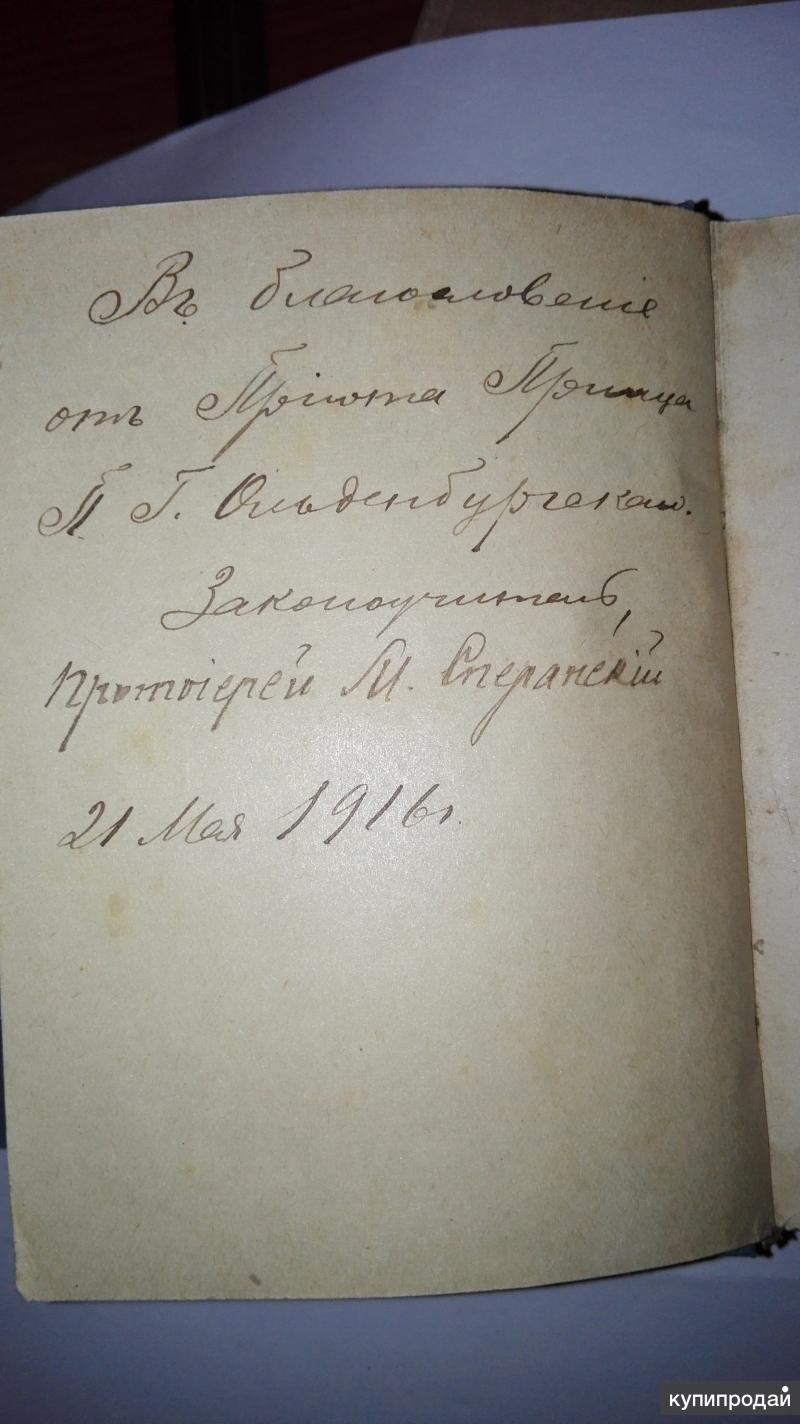 Въ благословенiе
отъ Прiюта Принца
П. Г. Ольденбургскаго.
Законоучитель,
Протоiерей М. Сперанскiй
21 Мая 1916 г.
купипродай